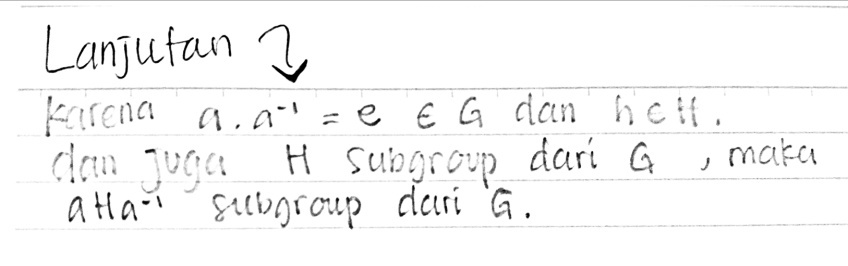 Lanjutan
Karena a . a⁻¹ = e ∈ G dan h ∈ H.
dan juga H subgroup dari G , maka
aHa⁻¹ subgroup dari G.